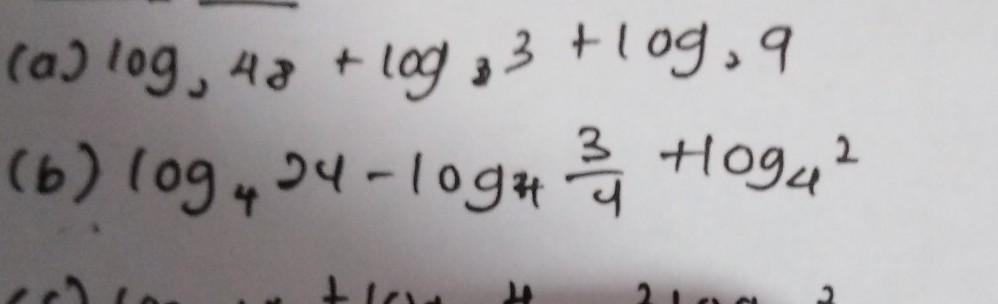 (a) log₃ 48 + log₃ 3 + log₃ 9
(b) log₄ 24 - log₄ 3/4 + log₄ 2
(c)